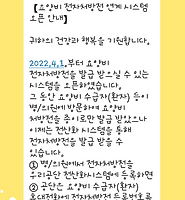 [요양비 전자처방전 연계 시스템
오픈 안내]
귀하의 건강과 행복을 기원합니다.
2022.4.1.부터 요양비
전자처방전을 발급 받으실 수 있는
시스템을 오픈하였습니다.
그 동안 요양비 수급자(환자) 등이
병/의원에 방문하여 요양비
처방전을 종이로만 발급 받았으나
이제는 전산화 시스템을 통해
전자처방전을 발급 받을 수
있습니다.
① 병/의원에서 전자처방전을
우리공단 전산화시스템에 등록하면
② 공단은 요양비 수급자(환자)
휴대전화에 전자처방전 등록번호를